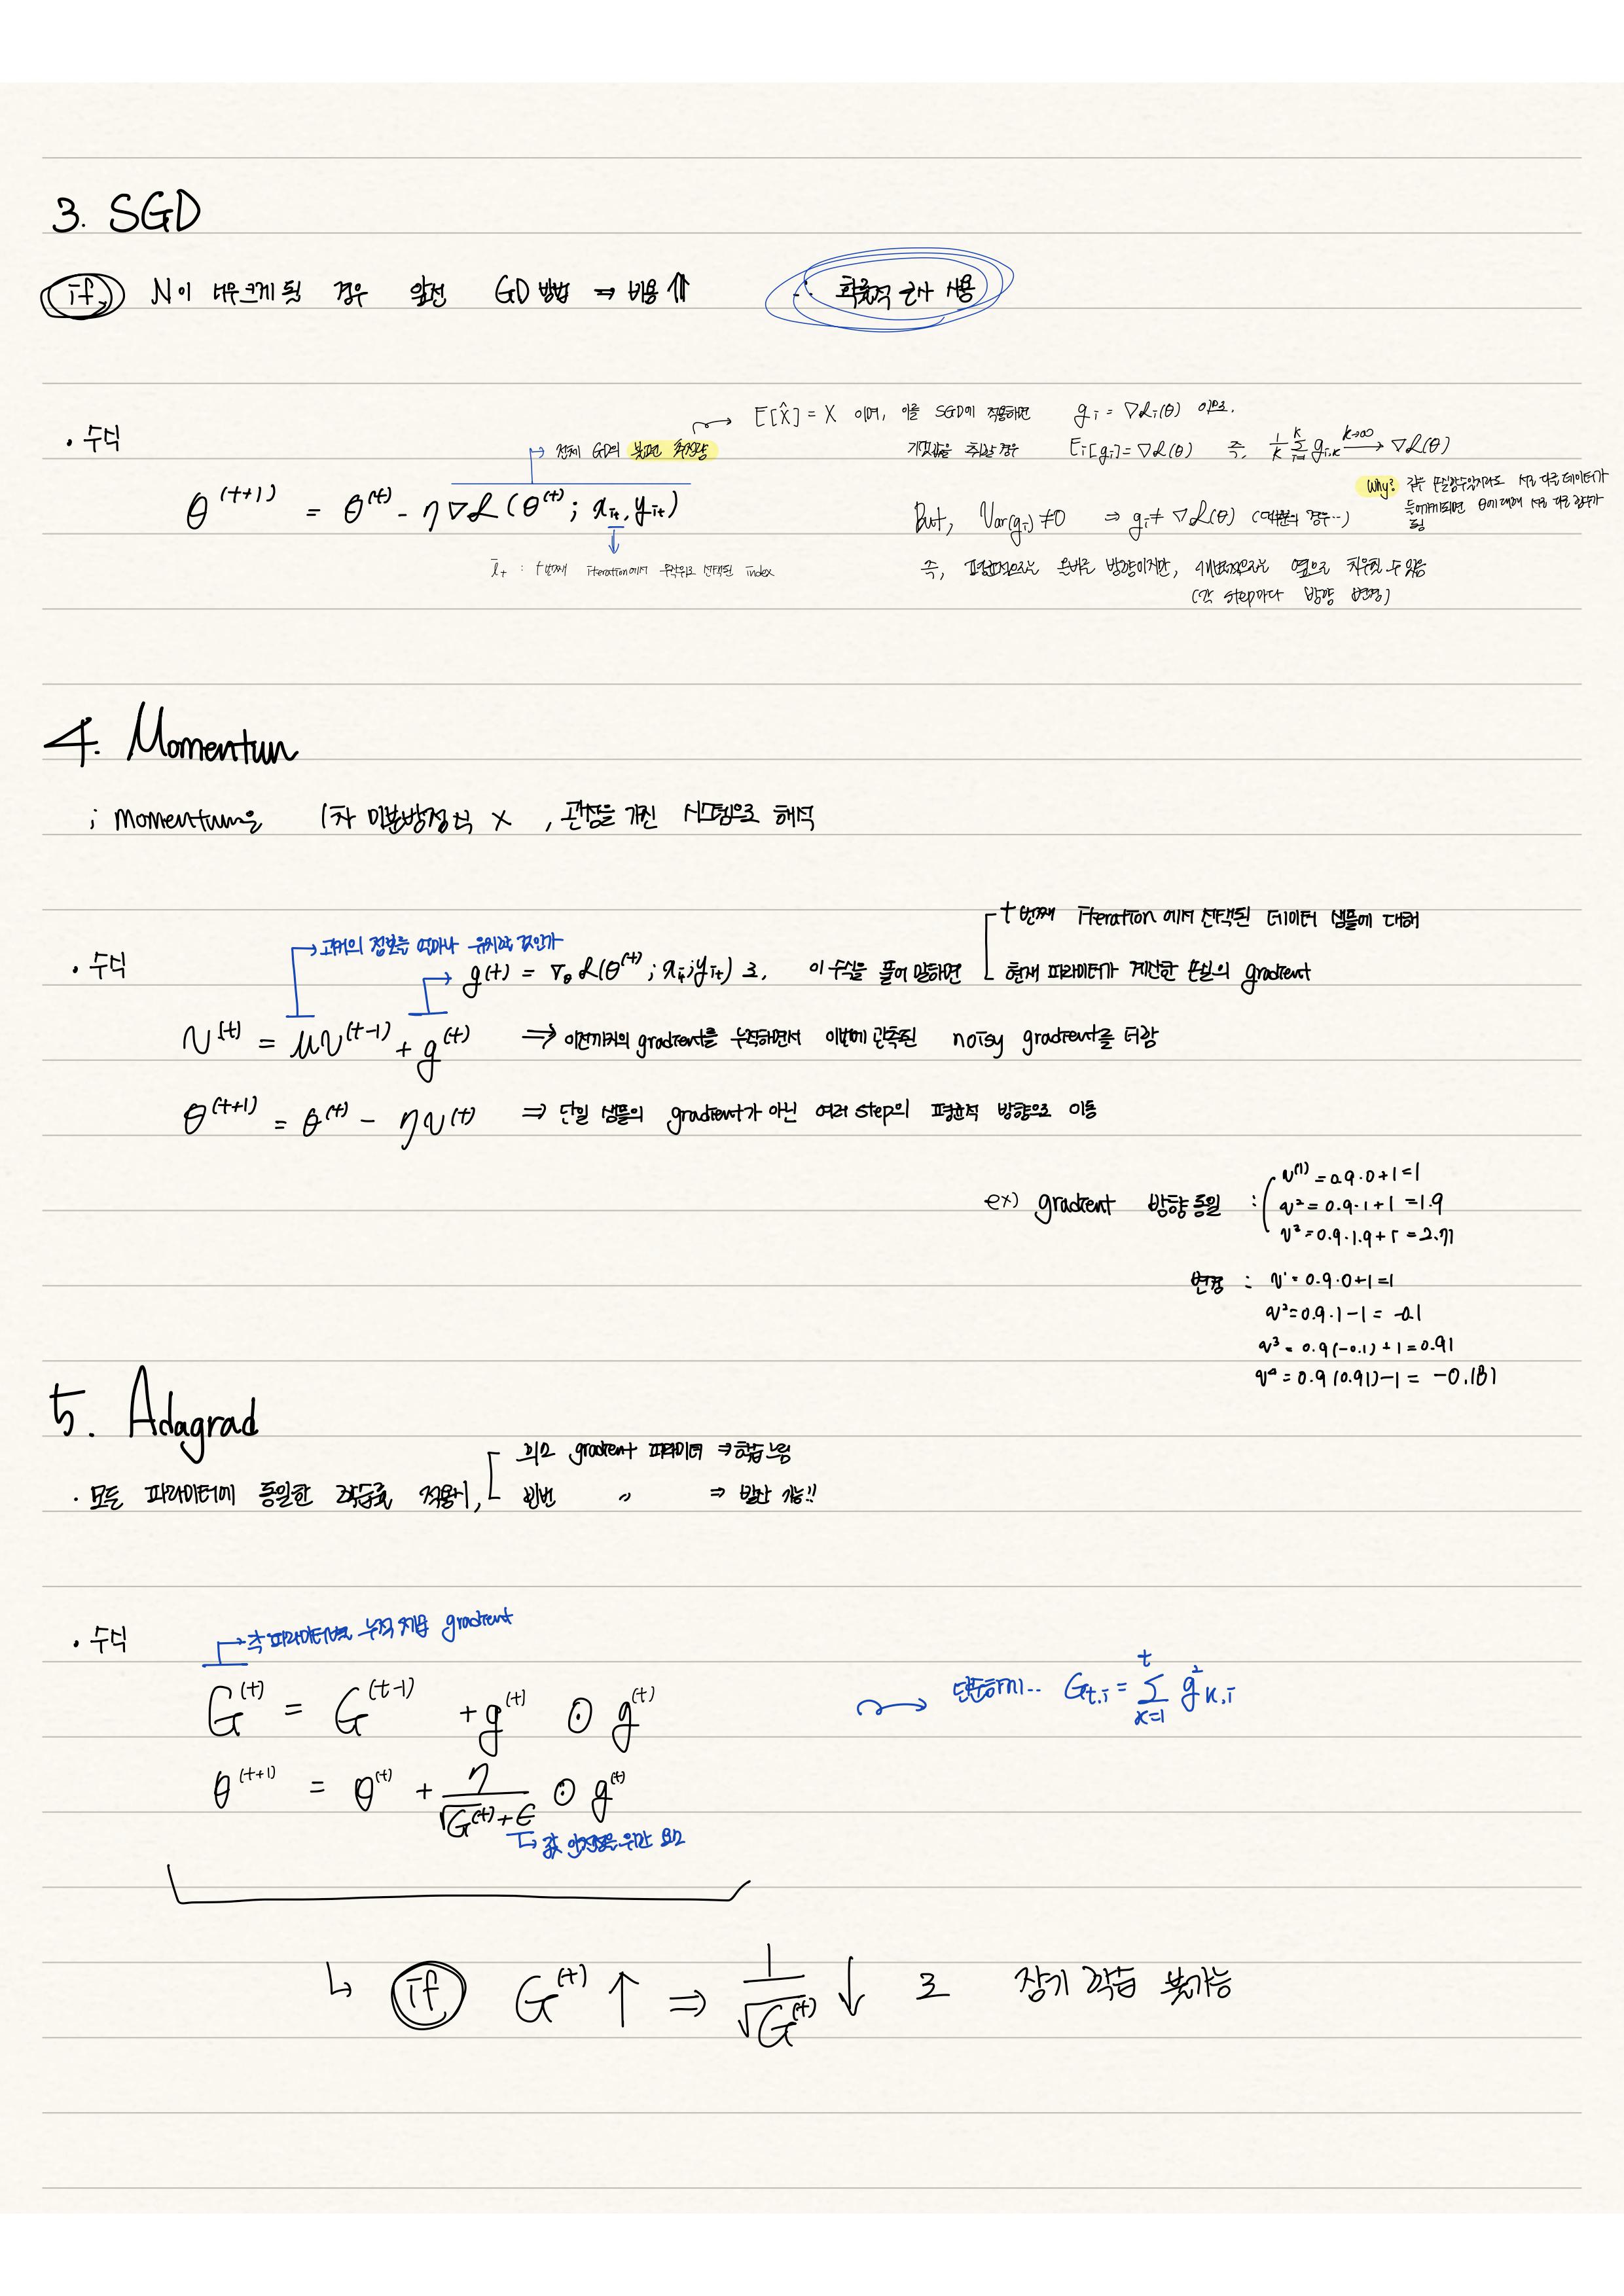 3. SGD
if, N이 너무 크게 될 경우 앞선 GD 방법 ⇒ 비용 ⇑ ∴ 확률적 근사 사용
E[X̂] = X 이며, 이를 SGD에 적용하면 g_i = ∇ℒ_i(θ) 이므로,
• 수식
전체 GD의 불편 추정량
기댓값을 취할 경우 E_i[g_i] = ∇ℒ(θ) 즉, 1/K Σ_{i=1}^{K} g_{i,K} →(K→∞) ∇ℒ(θ)
θ^(t+1) = θ^(t) - η∇ℒ(θ^(t); x_it, y_it)
Why? 같은 손실함수일지라도 서로 다른 데이터가
들어가게되면 θ에 대해 서로 다른 함수가
됨
But, Var(g_i) ≠ 0 ⇒ g_i ≠ ∇ℒ(θ) (대부분의 경우...)
i_t : t번째 iteration에서 무작위로 선택된 index
즉, 평균적으로는 올바른 방향이지만, 개별적으로는 옆으로 치우칠 수 있음
(각 step마다 방향 변경)
4. Momentun
; momentum을 1차 미분방정식 X , 관점을 가진 시스템으로 해석
t번째 iteration에서 선택된 데이터 샘플에 대해
과거의 정보를 얼마나 유지할 것인가
• 수식
g(t) = ∇_θ ℒ(θ^(t); x_it; y_it) 로, 이 수식을 풀어 말하면
현재 파라미터가 계산한 손실의 gradient
v^(t) = μv^(t-1) + g^(t) ⇒ 이전까지의 gradient를 누적하면서 이번에 관측된 noisy gradient를 더함
θ^(t+1) = θ^(t) - ηv^(t) ⇒ 단일 샘플의 gradient가 아닌 여러 step의 평균적 방향으로 이동
v^(1) = 0.9·0+1 = 1
ex) gradient 방향 동일 : v² = 0.9·1+1 = 1.9
v³ = 0.9·1.9+1 = 2.71
변경 : v¹ = 0.9·0+1 = 1
v² = 0.9·1-1 = -0.1
v³ = 0.9(-0.1)+1 = 0.91
v⁴ = 0.9(0.91)-1 = -0.181
5. Adagrad
희소 gradient 파라미터 ⇒ 학습 느림
• 모든 파라미터에 동일한 학습률 적용시,
빈번 〃 ⇒ 발산 가능!!
각 파라미터별로 누적 제곱 gradient
• 수식
G^(t) = G^(t-1) + g^(t) ⊙ g^(t)
단순하게... G_{t,i} = Σ_{k=1}^{t} g²_{k,i}
θ^(t+1) = θ^(t) + η/(√G^(t)+ϵ) ⊙ g^(t)
값 안정성을 위한 요소
↳ if G^(t) ↑ ⇒ 1/√G^(t) ↓ 로 장기 학습 불가능